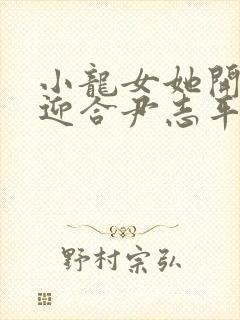 小龍女她開
迎合尹志平
野村宗弘